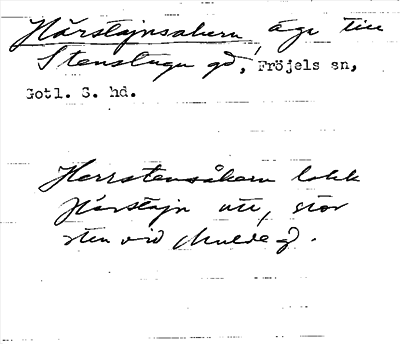 Härstajnsakern, äga till
Stenstugu gd, Fröjels sn,
Gotl. S. hd.
Herrstensåkern lokk
Härstajn ute, stor
sten vid Mulde gd.